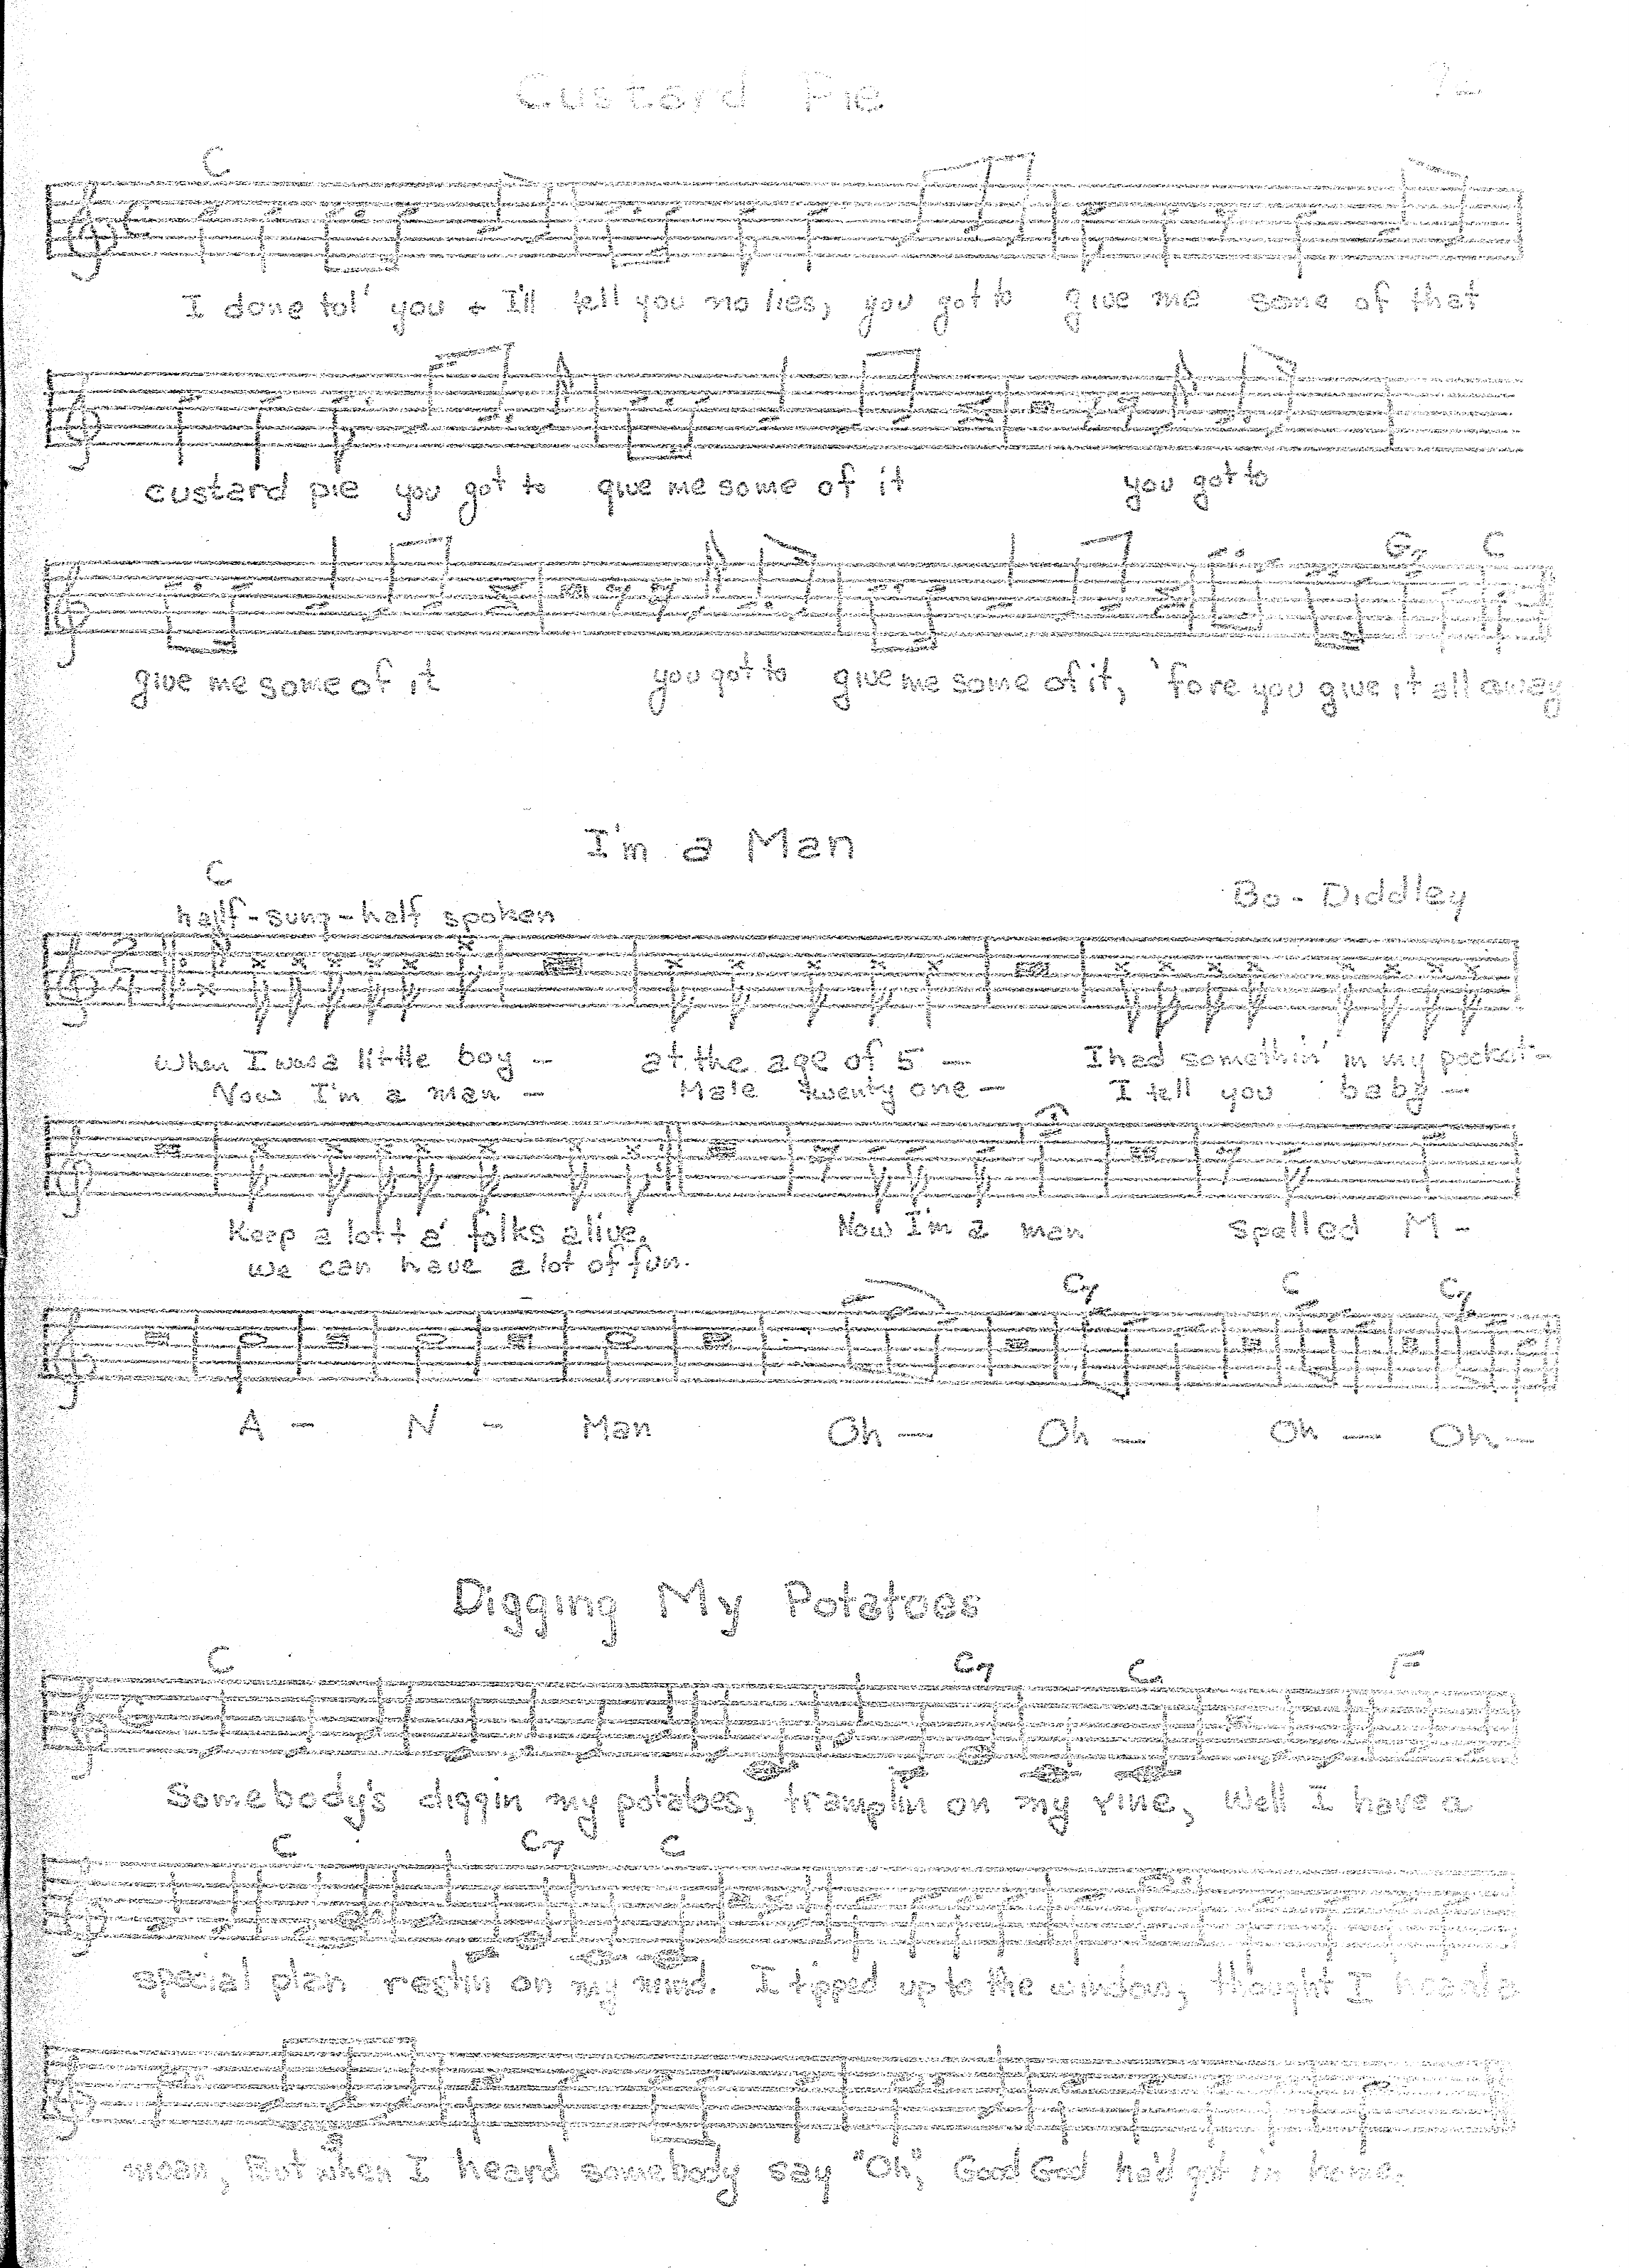 Custard Pie
C
I done tol' you + I'll tell you no lies, you got to give me some of that
custard pie you got to give me some of it you got to
C7 C
give me some of it you got to give me some of it, 'fore you give it all away
I'm a Man
C
Bo - Diddley
half - sung - half spoken
When I was a little boy - at the age of 5 - I had somethin' in my pocket -
Now I'm a man - Male twenty one - I tell you baby -
Keep a lott a' folks alive, Now I'm a man Spelled M -
we can have a lot of fun.
C7 C C7
A - N - Man Oh - Oh - Oh - Oh -
Digging My Potatoes
C C7 C F
Somebody's diggin my potatoes, tramplin on my vine, Well I have a
C C7 C
special plan restin on my mind. I tipped up to the window, thought I heard a
, But when I heard somebody say "Oh", Good God had got in here.